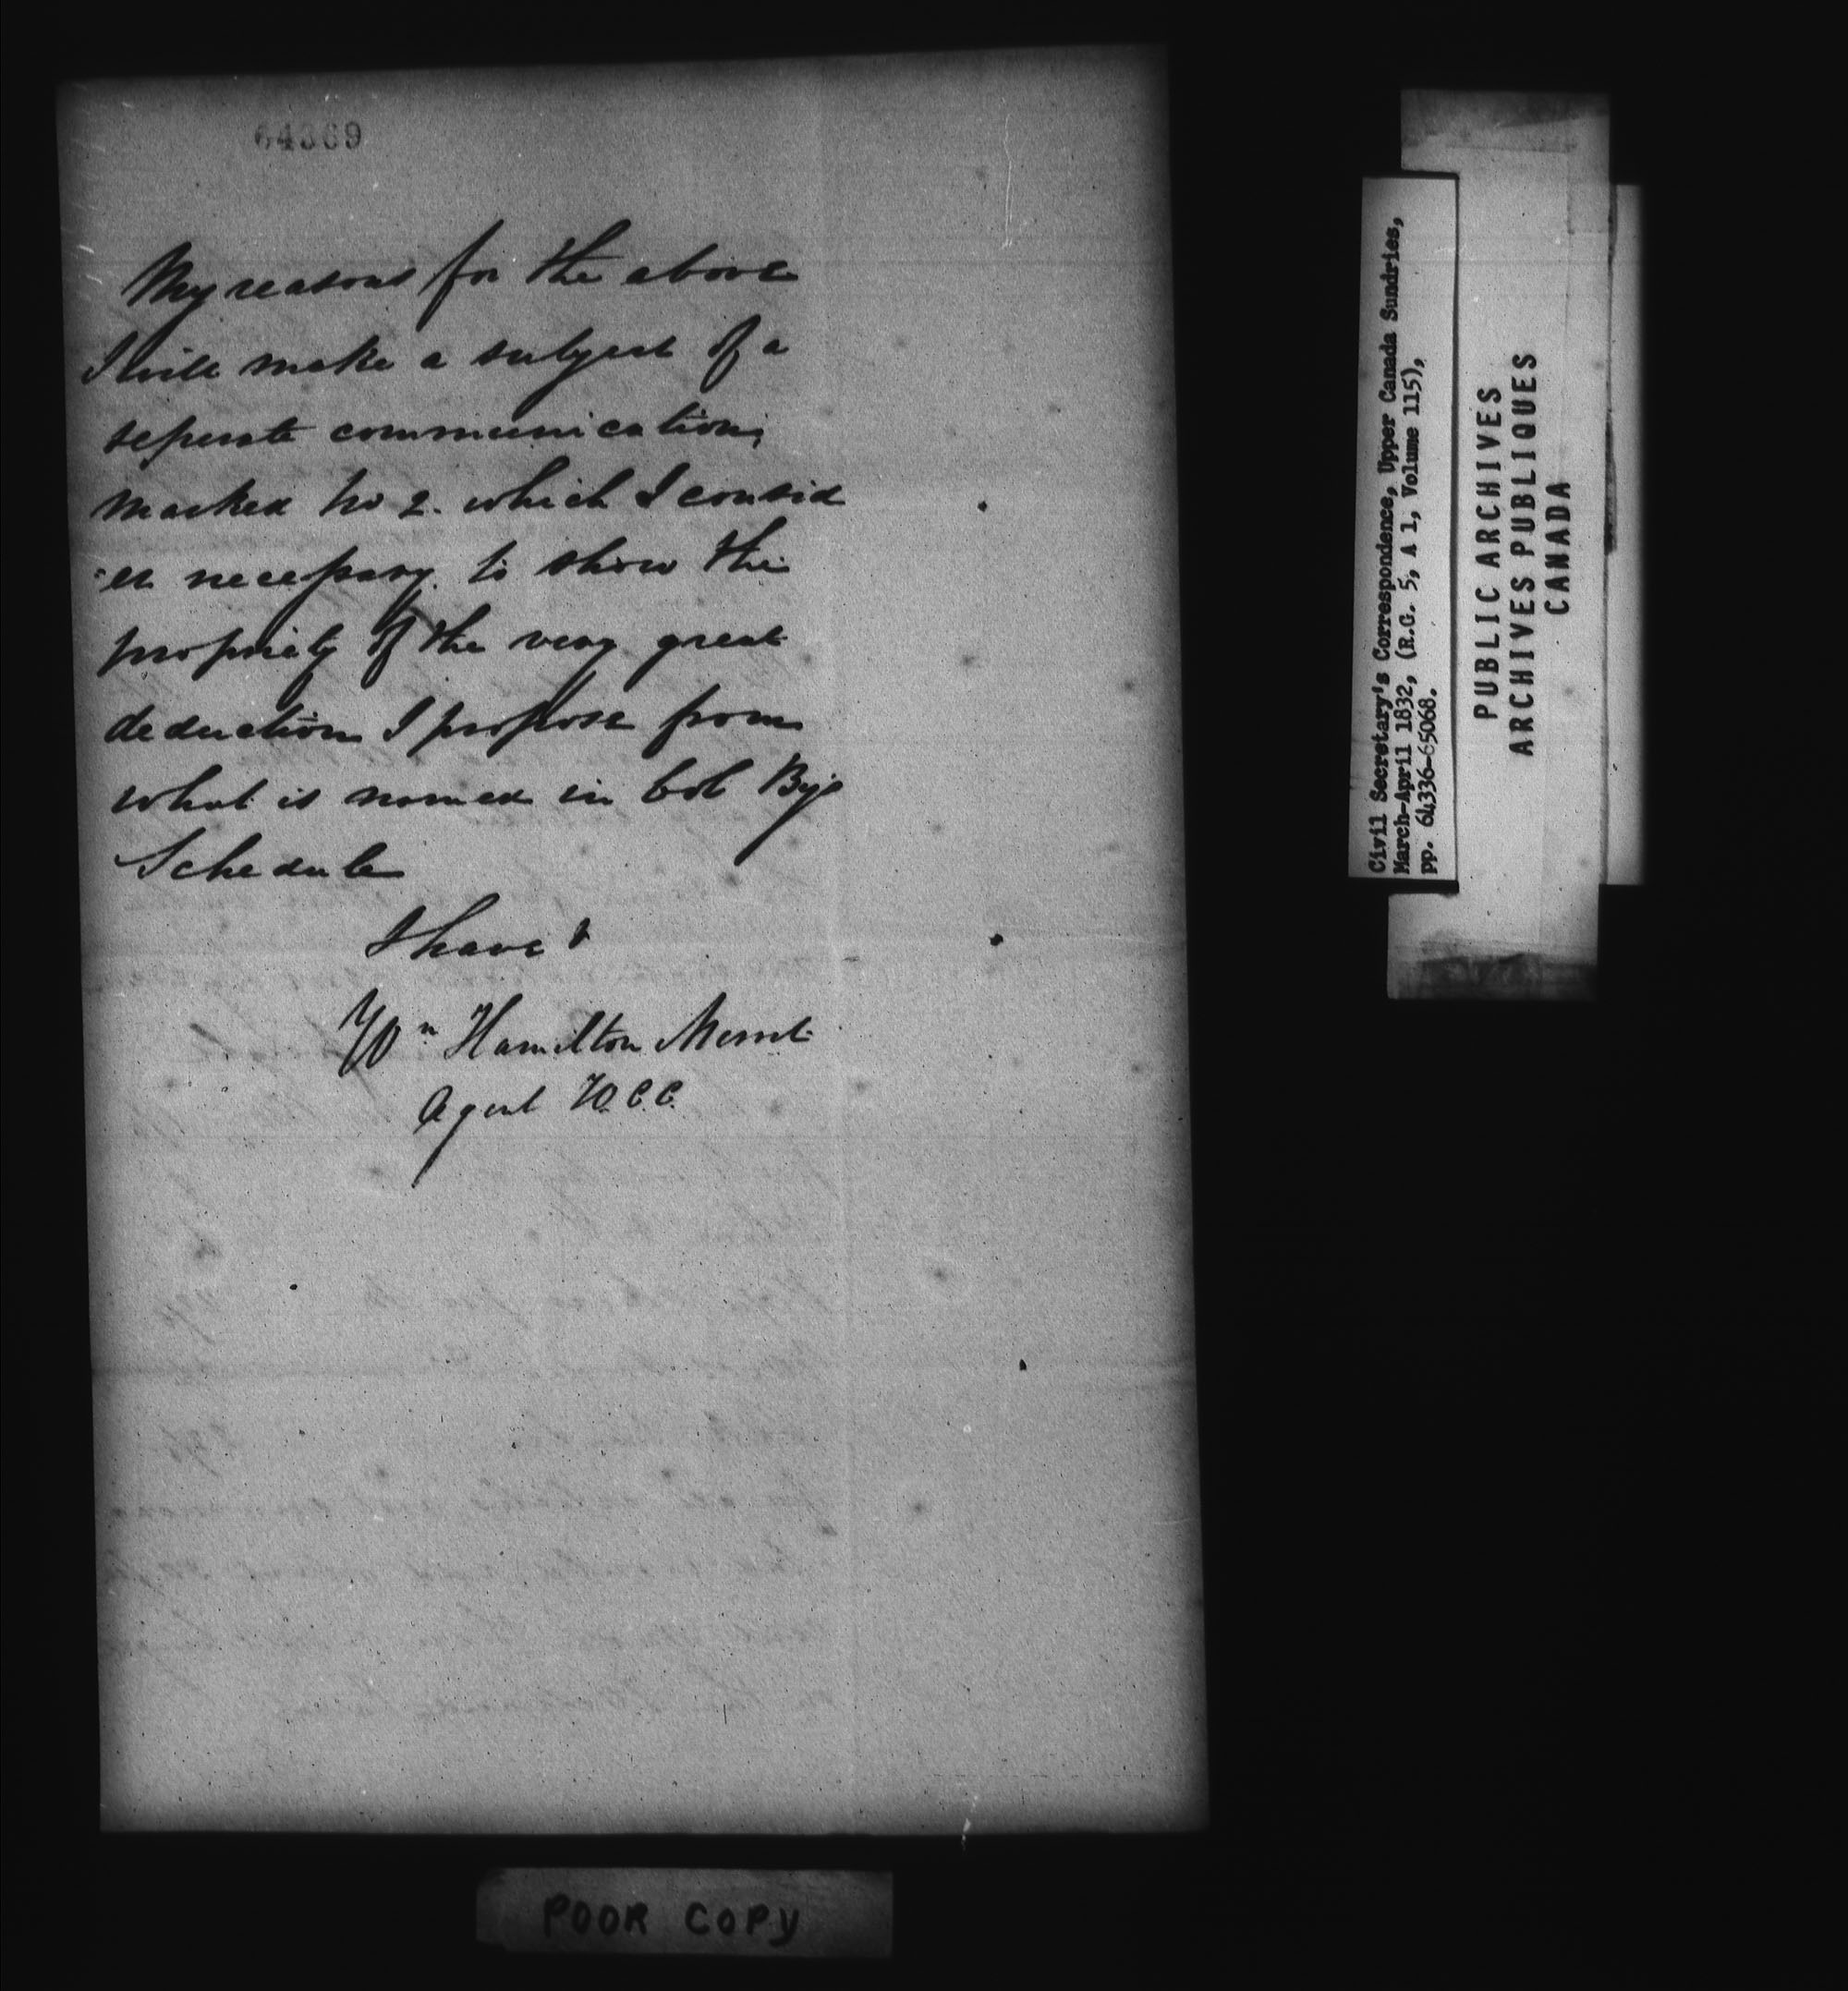 64369
My reasons for the above
I will make a subject of a
seperate communication,
marked No 2. which I consid
er necessary to show the
propriety of the very great
deduction I propose from
what is named in Col By's
Schedule
I have &
Wm Hamilton Merritt
Agent W.C.C.
Civil Secretary's Correspondence, Upper Canada Sundries,
March-April 1832, (R.G. 5, A 1, Volume 115),
pp. 64336-65068.
PUBLIC ARCHIVES
ARCHIVES PUBLIQUES
CANADA
POOR COPY